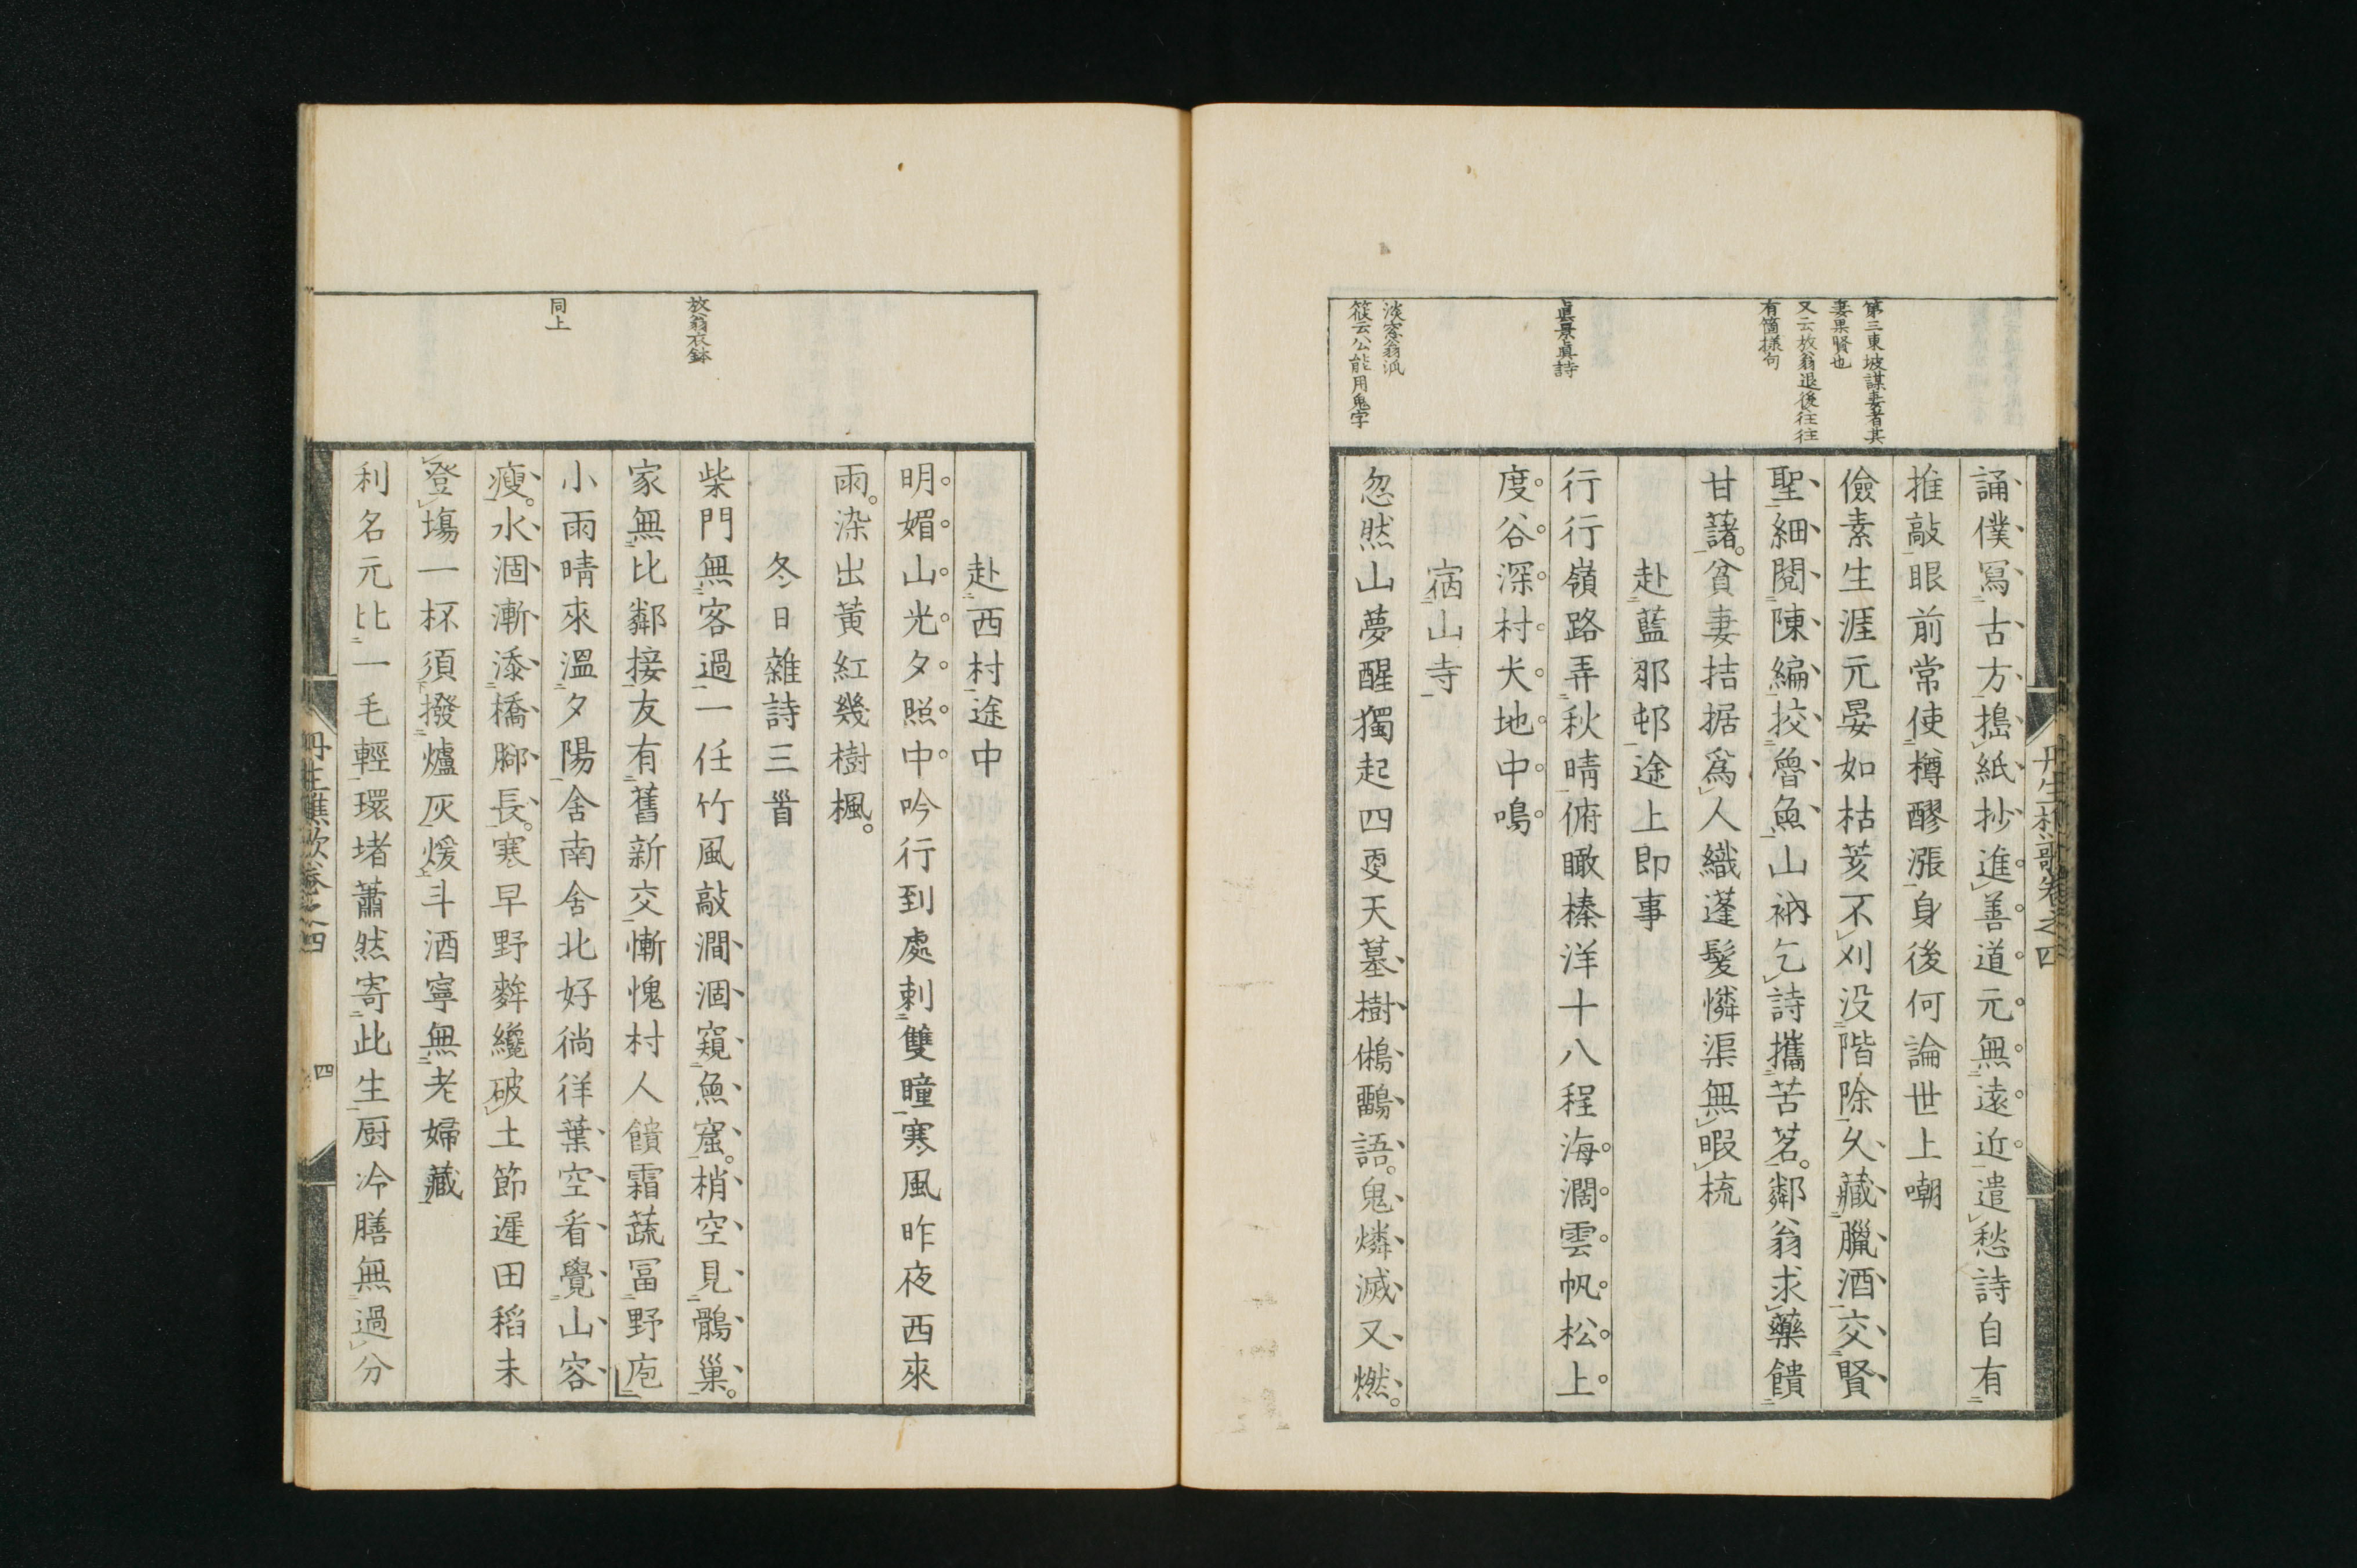 第三東坡謀妻者其
妻果賢也
又云放翁退後往往
有箇様句
眞景眞詩
淡窓翁派
筱云公能用鬼字
誦僕冩古方搗紙抄進善道元無遠近遣愁詩自有
推敲眼前常使樽醪漲身後何論世上嘲
儉素生涯元晏如枯荄不刈没階除久藏臘酒交賢
聖細閲陳編挍魯魚山衲乞詩攜苦茗鄰翁求藥饋
甘藷貧妻拮据為人織蓬髮憐渠無暇梳
赴藍那邨途上即事
行行嶺路弄秋晴俯瞰榛洋十八程海濶雲帆松上
度谷深村犬地中鳴
宿山寺
忽然山夢醒獨起四更天墓樹鵂鶹語鬼燐滅又燃
丹生樵歌卷之四
放翁衣鉢
同上
赴西村途中
明媚山光夕照中吟行到處刺雙瞳寒風昨夜西來
雨染出黃紅幾樹楓
冬日雜詩三首
柴門無客過一任竹風敲澗涸窺魚窟梢空見鶻巢
家無比鄰接友有舊新交慚愧村人饋霜蔬冨野庖
小雨晴來溫夕陽舍南舍北好徜徉葉空看覺山容
瘦水涸漸添橋腳長寒早野麰纔破土節遲田稻未
登場一杯須撥爐灰煖斗酒寧無老婦藏
利名元比一毛輕環堵蕭然寄此生厨冷膳無過分
丹生樵歌卷之四
四